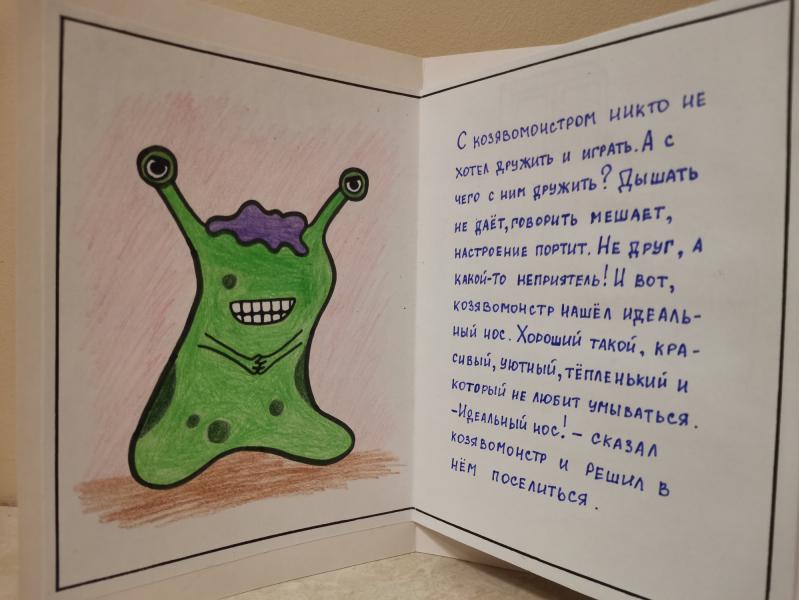 С козявомонстром никто не
хотел дружить и играть. А с
чего с ним дружить? Дышать
не даёт, говорить мешает,
настроение портит. Не друг, а
какой-то неприятель! И вот,
козявомонстр нашёл идеаль-
ный нос. Хороший такой, кра-
сивый, уютный, тёпленький и
который не любит умываться.
-Идеальный нос! - сказал
козявомонстр и решил в
нём поселиться.